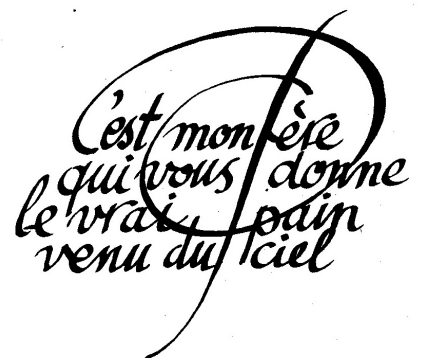 C'est mon Père
qui vous donne
le vrai pain
venu du ciel